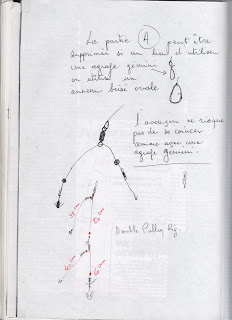 La partie (A) peut être
supprimée si au lieu d'utiliser
une agrafe gémini
on utilise un
anneau brisé ovale
l'avançon ne risque
pas de se coincer
comme avec une
agrafe gémini.
Double Pulley Rig
30 cm
60 cm